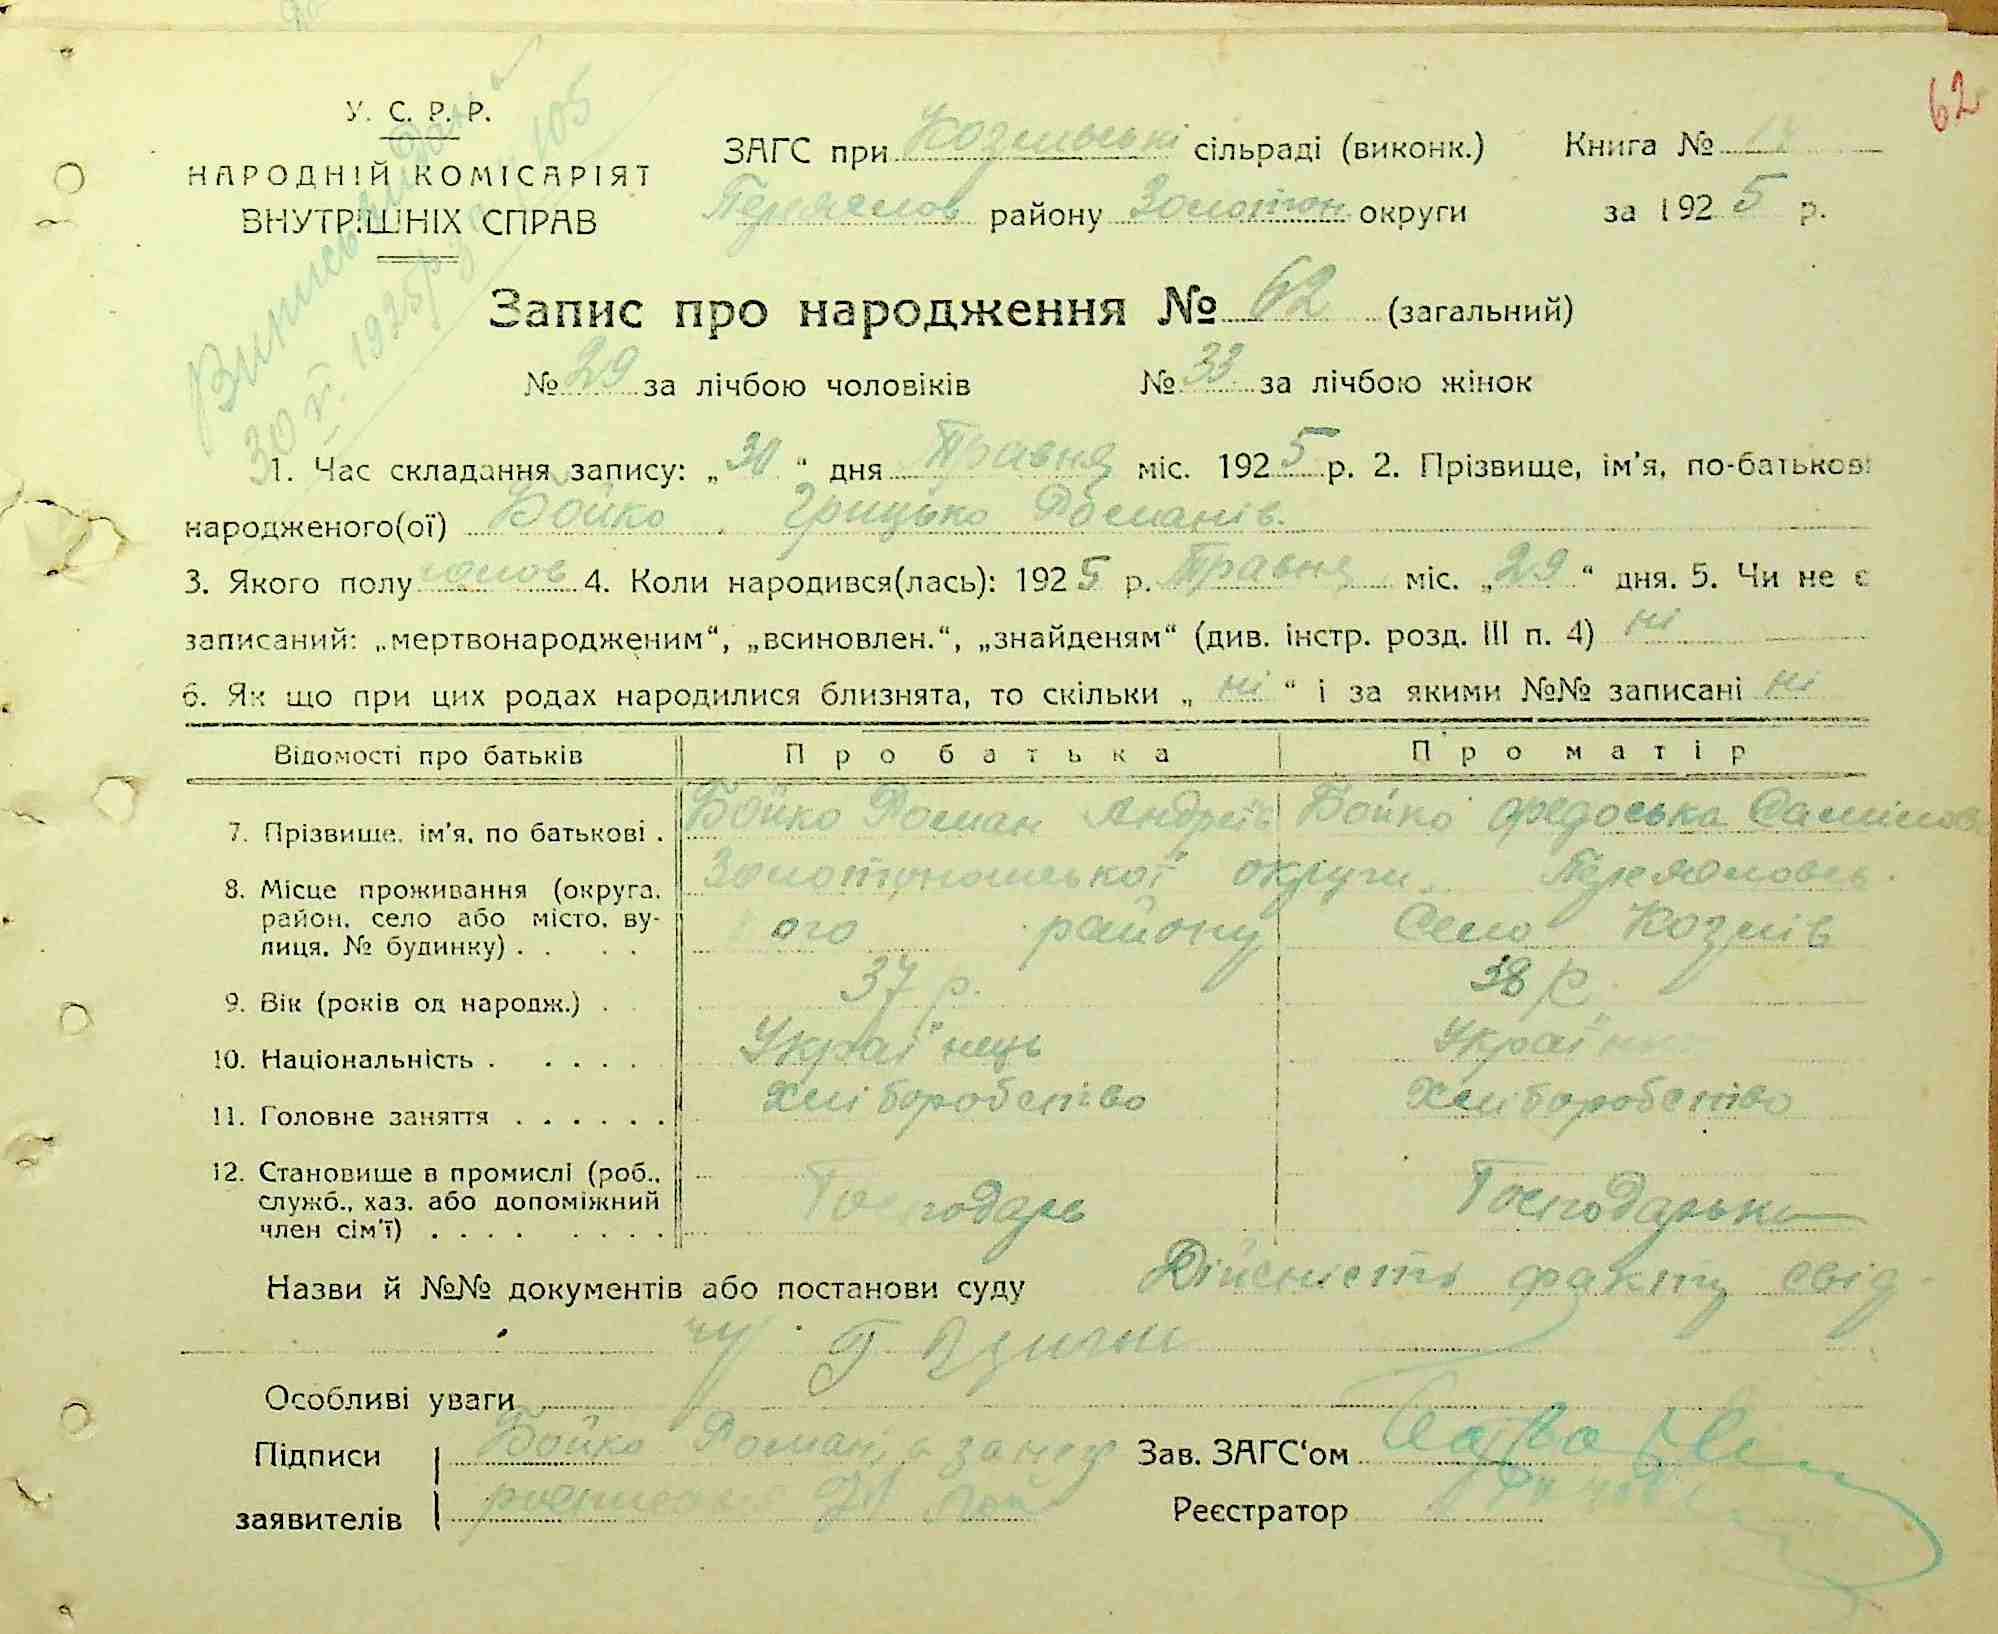 62
У. С. Р. Р.
НАРОДНІЙ КОМІСАРІЯТ
ВНУТРІШНІХ СПРАВ
Випись видана
30 V. 1925 р. за № 105
ЗАГС при Козлівські сільраді (виконк.) Книга №
Переяслов району Золотон. округи за 1925 р.
Запис про народження № 62 (загальний)
№ 29 за лічбою чоловіків № 33 за лічбою жінок
1. Час складання запису: „30“ дня Травня міс. 1925 р. 2. Прізвище, ім'я, по-батькові
народженого(ої) Бойко Грицько Романів.
3. Якого полу чолов 4. Коли народився(лась): 1925 р. Травня міс. „29“ дня. 5. Чи не є
записаний: „мертвонародженим“, „всиновлен.“, „знайденям“ (див. інстр. розд. III п. 4) ні
6. Як що при цих родах народилися близнята, то скільки „ні“ і за якими №№ записані ні
Відомості про батьків Про батька Про матір
7. Прізвище, ім'я, по батькові . Бойко Роман Андріїв Бойко Федоська Самілов
8. Місце проживання (округа, район, село або місто, вулиця, № будинку) . . . . Золотоношської округи Переясловсь-
ого району Село Козлів
9. Вік (років од народж.) . . 37 р. 38 р.
10. Національність . . . . . Українець Українка
11. Головне заняття . . . . . . Хліборобство Хліборобство
12. Становище в промислі (роб., служб., хаз. або допоміжний член сім'ї) . . . . . . . . Господарь Господарька
Назви й №№ документів або постанови суду Дійсність факту свід-
чу Г
Особливі уваги
Підписи заявителів Бойко Роман, а за него
Зав. ЗАГС'ом
Реєстратор